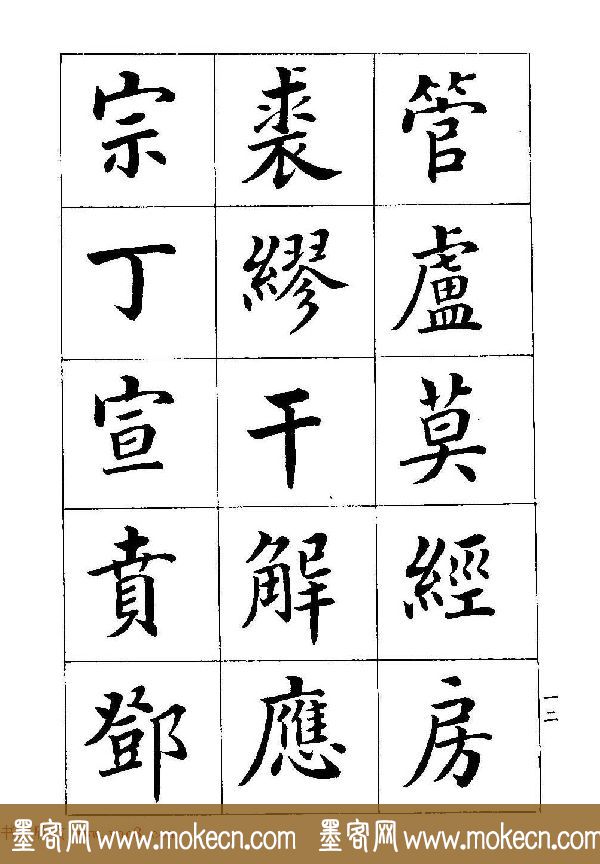 管盧莫經房
裘繆干解應
宗丁宣賁鄧
一二
墨客网 www.mokecn.com 墨客网 www.mokecn.com